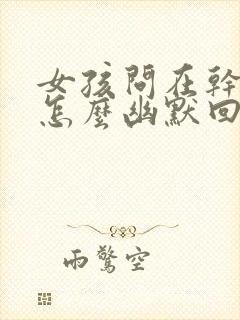 女孩問在幹
怎麼幽默回
雨驚空